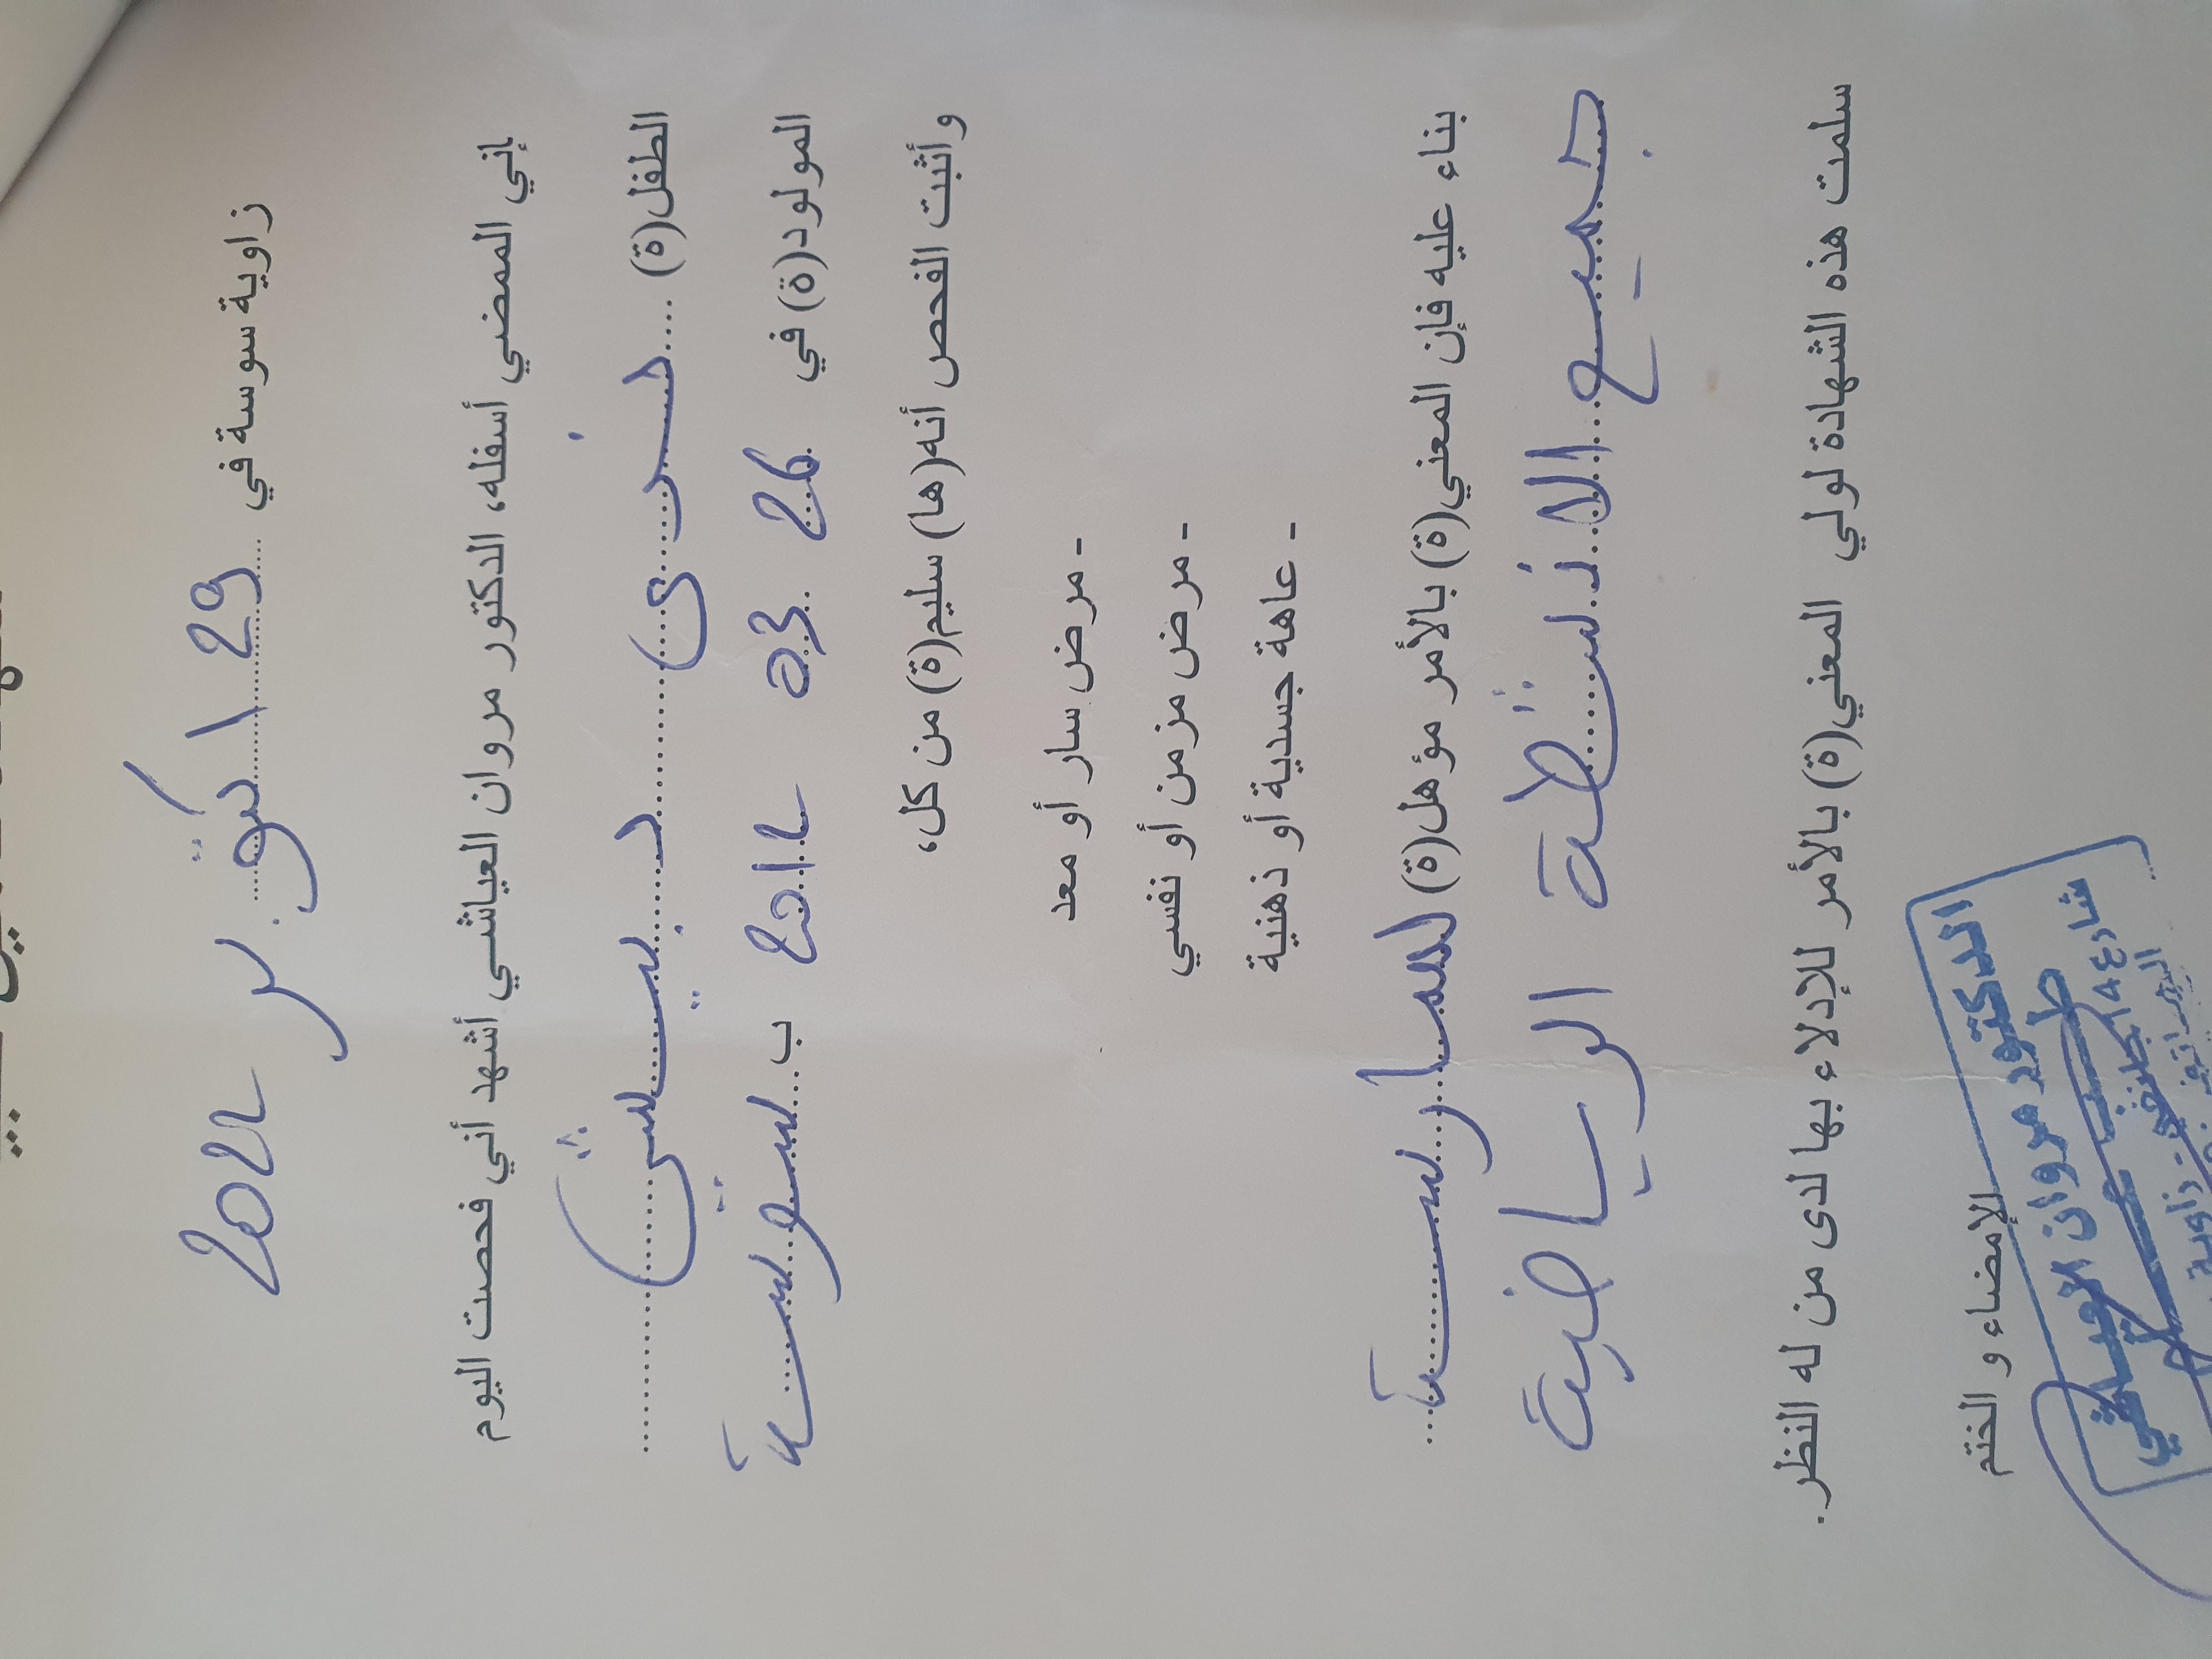 زاوية سوسة في 29 اكتوبر 2022
إني الممضي أسفله، الدكتور مروان العياشي أشهد أني فحصت اليوم
الطفل(ة)
المولود(ة) في 26 03 2012 ب سوسة
و أثبت الفحص أنه(ها) سليم(ة) من كل،
- مرض سار أو معد
- مرض مزمن أو نفسي
- عاهة جسدية أو ذهنية
بناء عليه فإن المعني(ة) بالأمر مؤهل(ة) لممارسة
جميع الانشطة الرياضية
سلمت هذه الشهادة لولي المعني(ة) بالأمر للإدلاء بها لدى من له النظر.
الإمضاء و الختم
الدكتور مروان العياشي